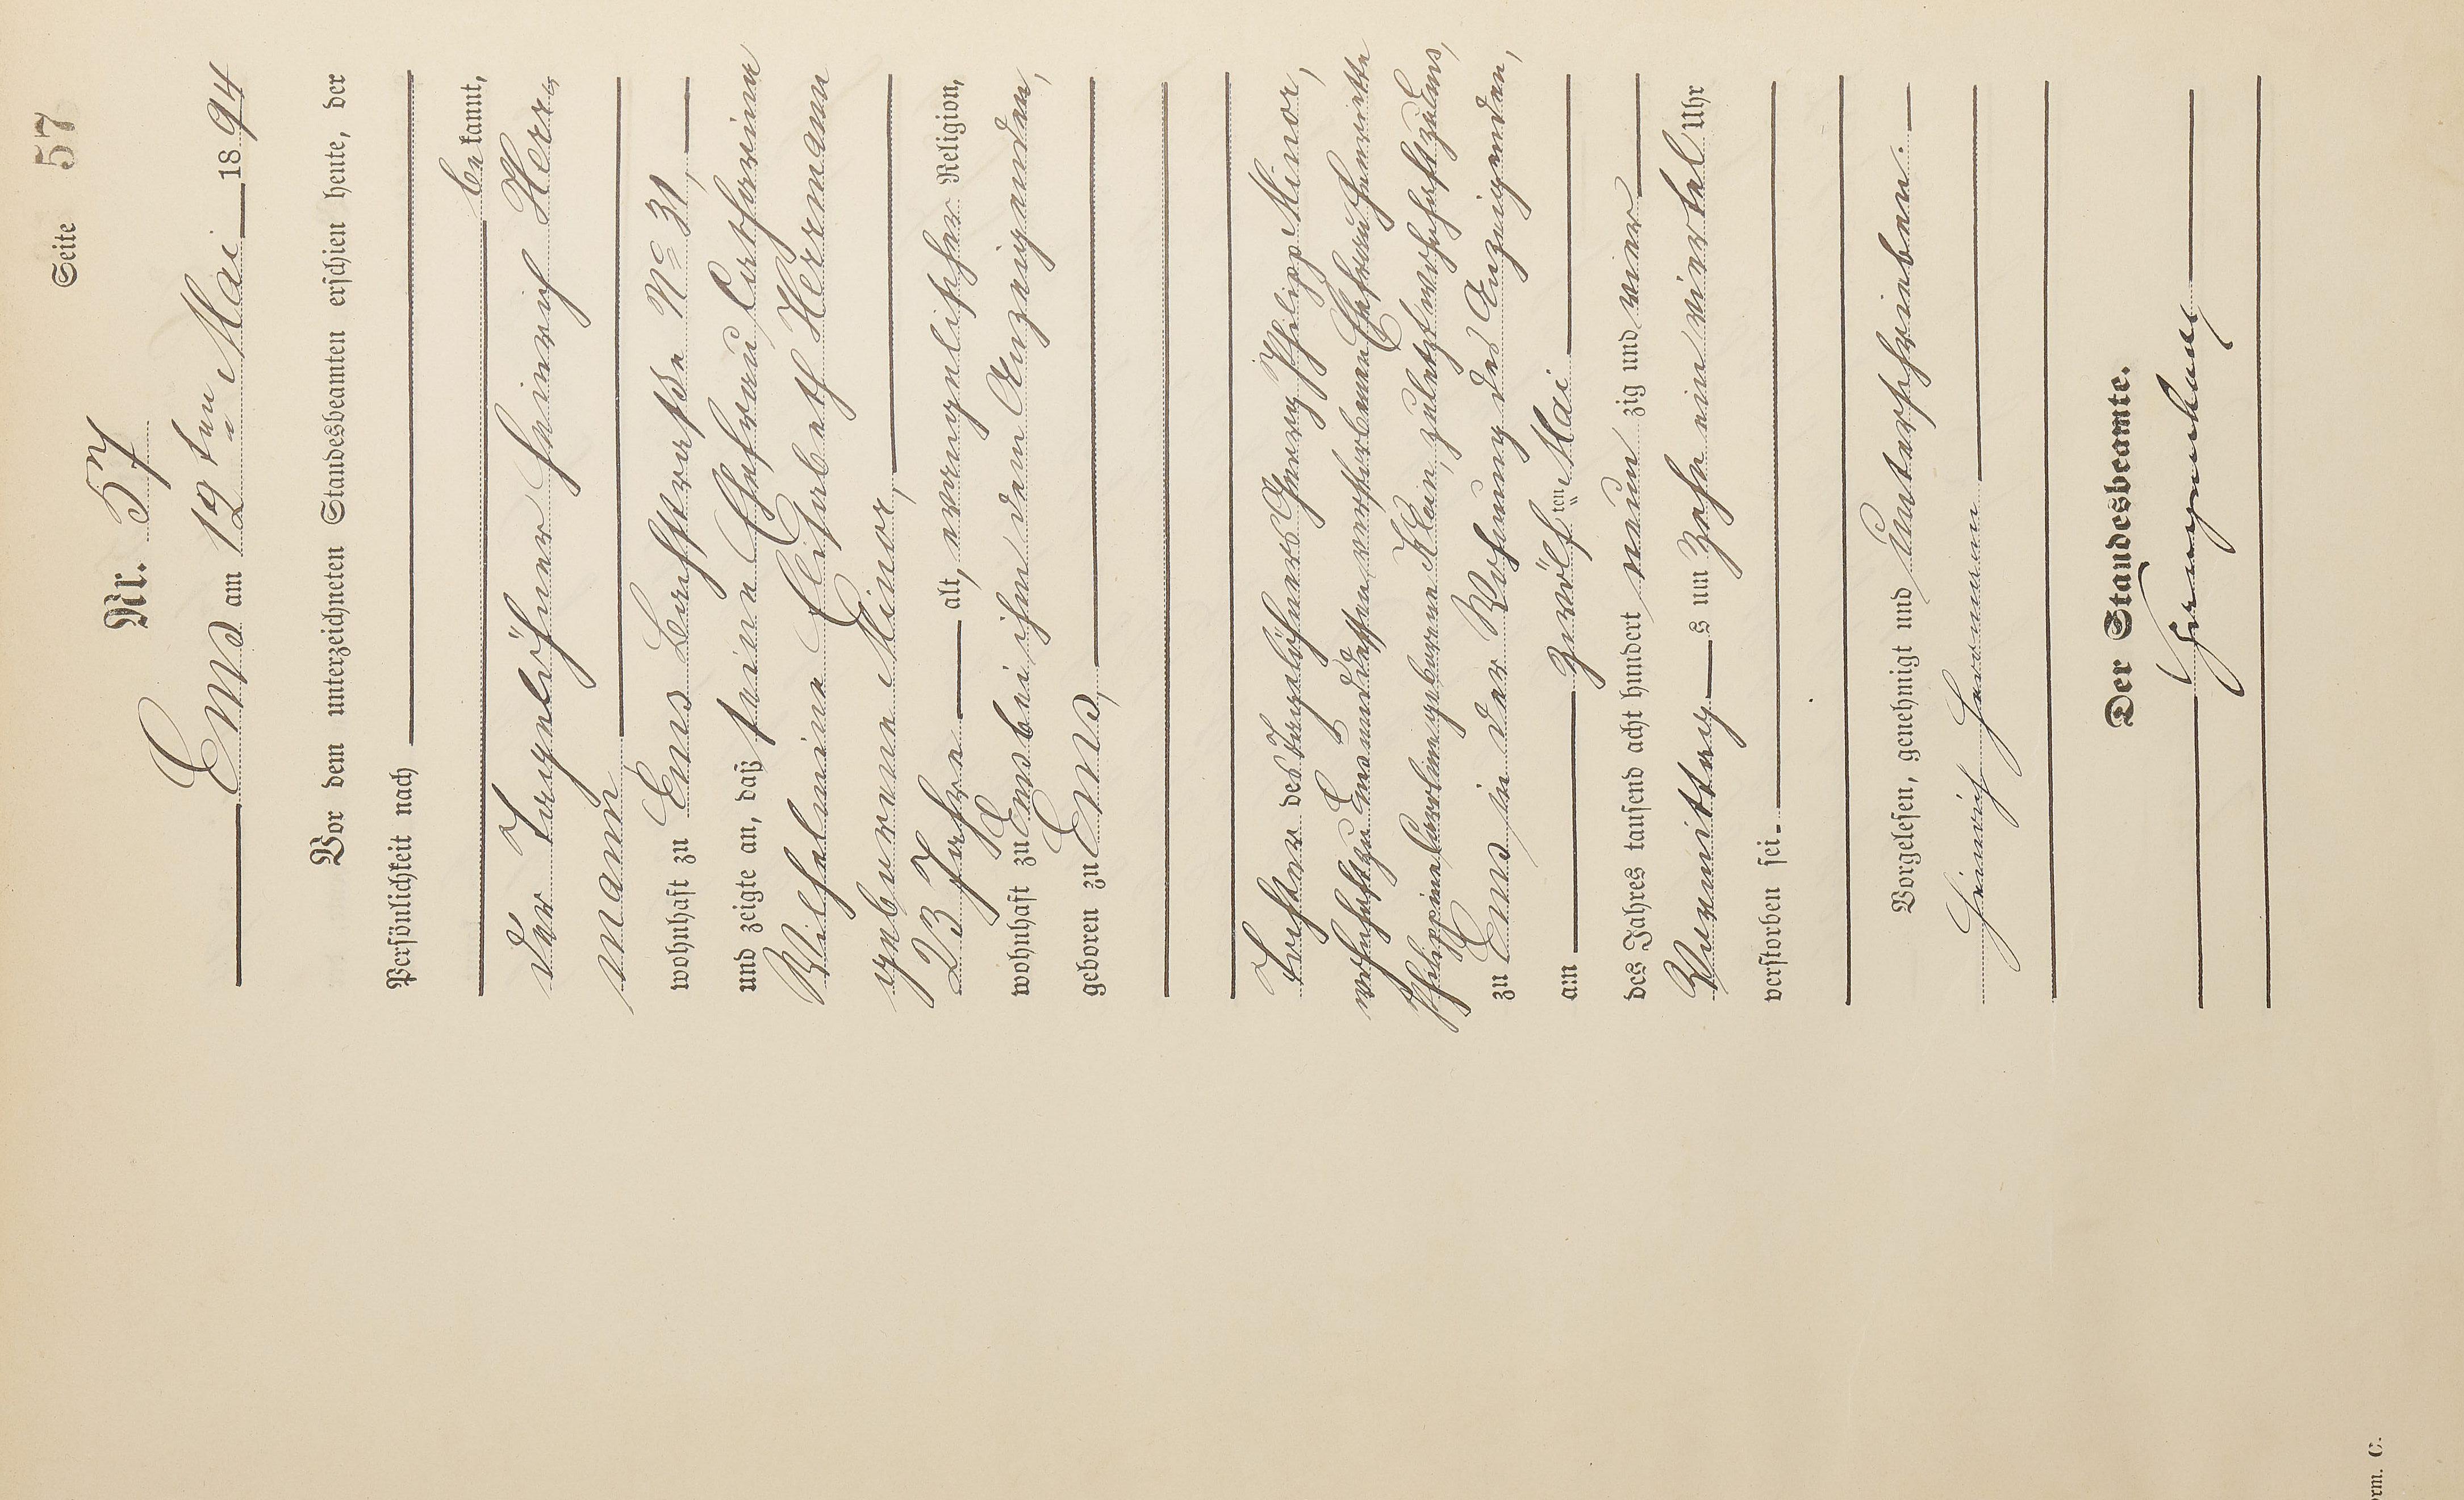 Seite 57
Nr. 57
Ems am 12ten Mai 1894
Vor dem unterzeichneten Standesbeamten erschien heute, der
Persönlichkeit nach
bekannt,
der Tagelöhner Heinrich Herr-
mann
wohnhaft zu Ems Bachstraße No 31,
und zeigte an, daß seine Ehefrau Catharina
Wilhelmine Elisabeth Herrmann
geborene Minor,
23 Jahre alt, evangelischer Religion,
wohnhaft zu Ems bei ihm dem Anzeigenden,
geboren zu Ems,
Tochter des Tagelöhners Georg Philipp Minor,
wohnhaft zu Ems und dessen verstorbenen Ehefrau Henriette
Philippine Caroline geborene Klein, zuletzt wohnhaft zu Ems,
zu Ems in der Wohnung des Anzeigenden,
am zwölften Mai
des Jahres tausend acht hundert neunzig und vier
Vormittags um zehn ein viertel Uhr
verstorben sei.
Vorgelesen, genehmigt und unterschrieben.
Heinrich Herrmann
Der Standesbeamte.
orm. C.